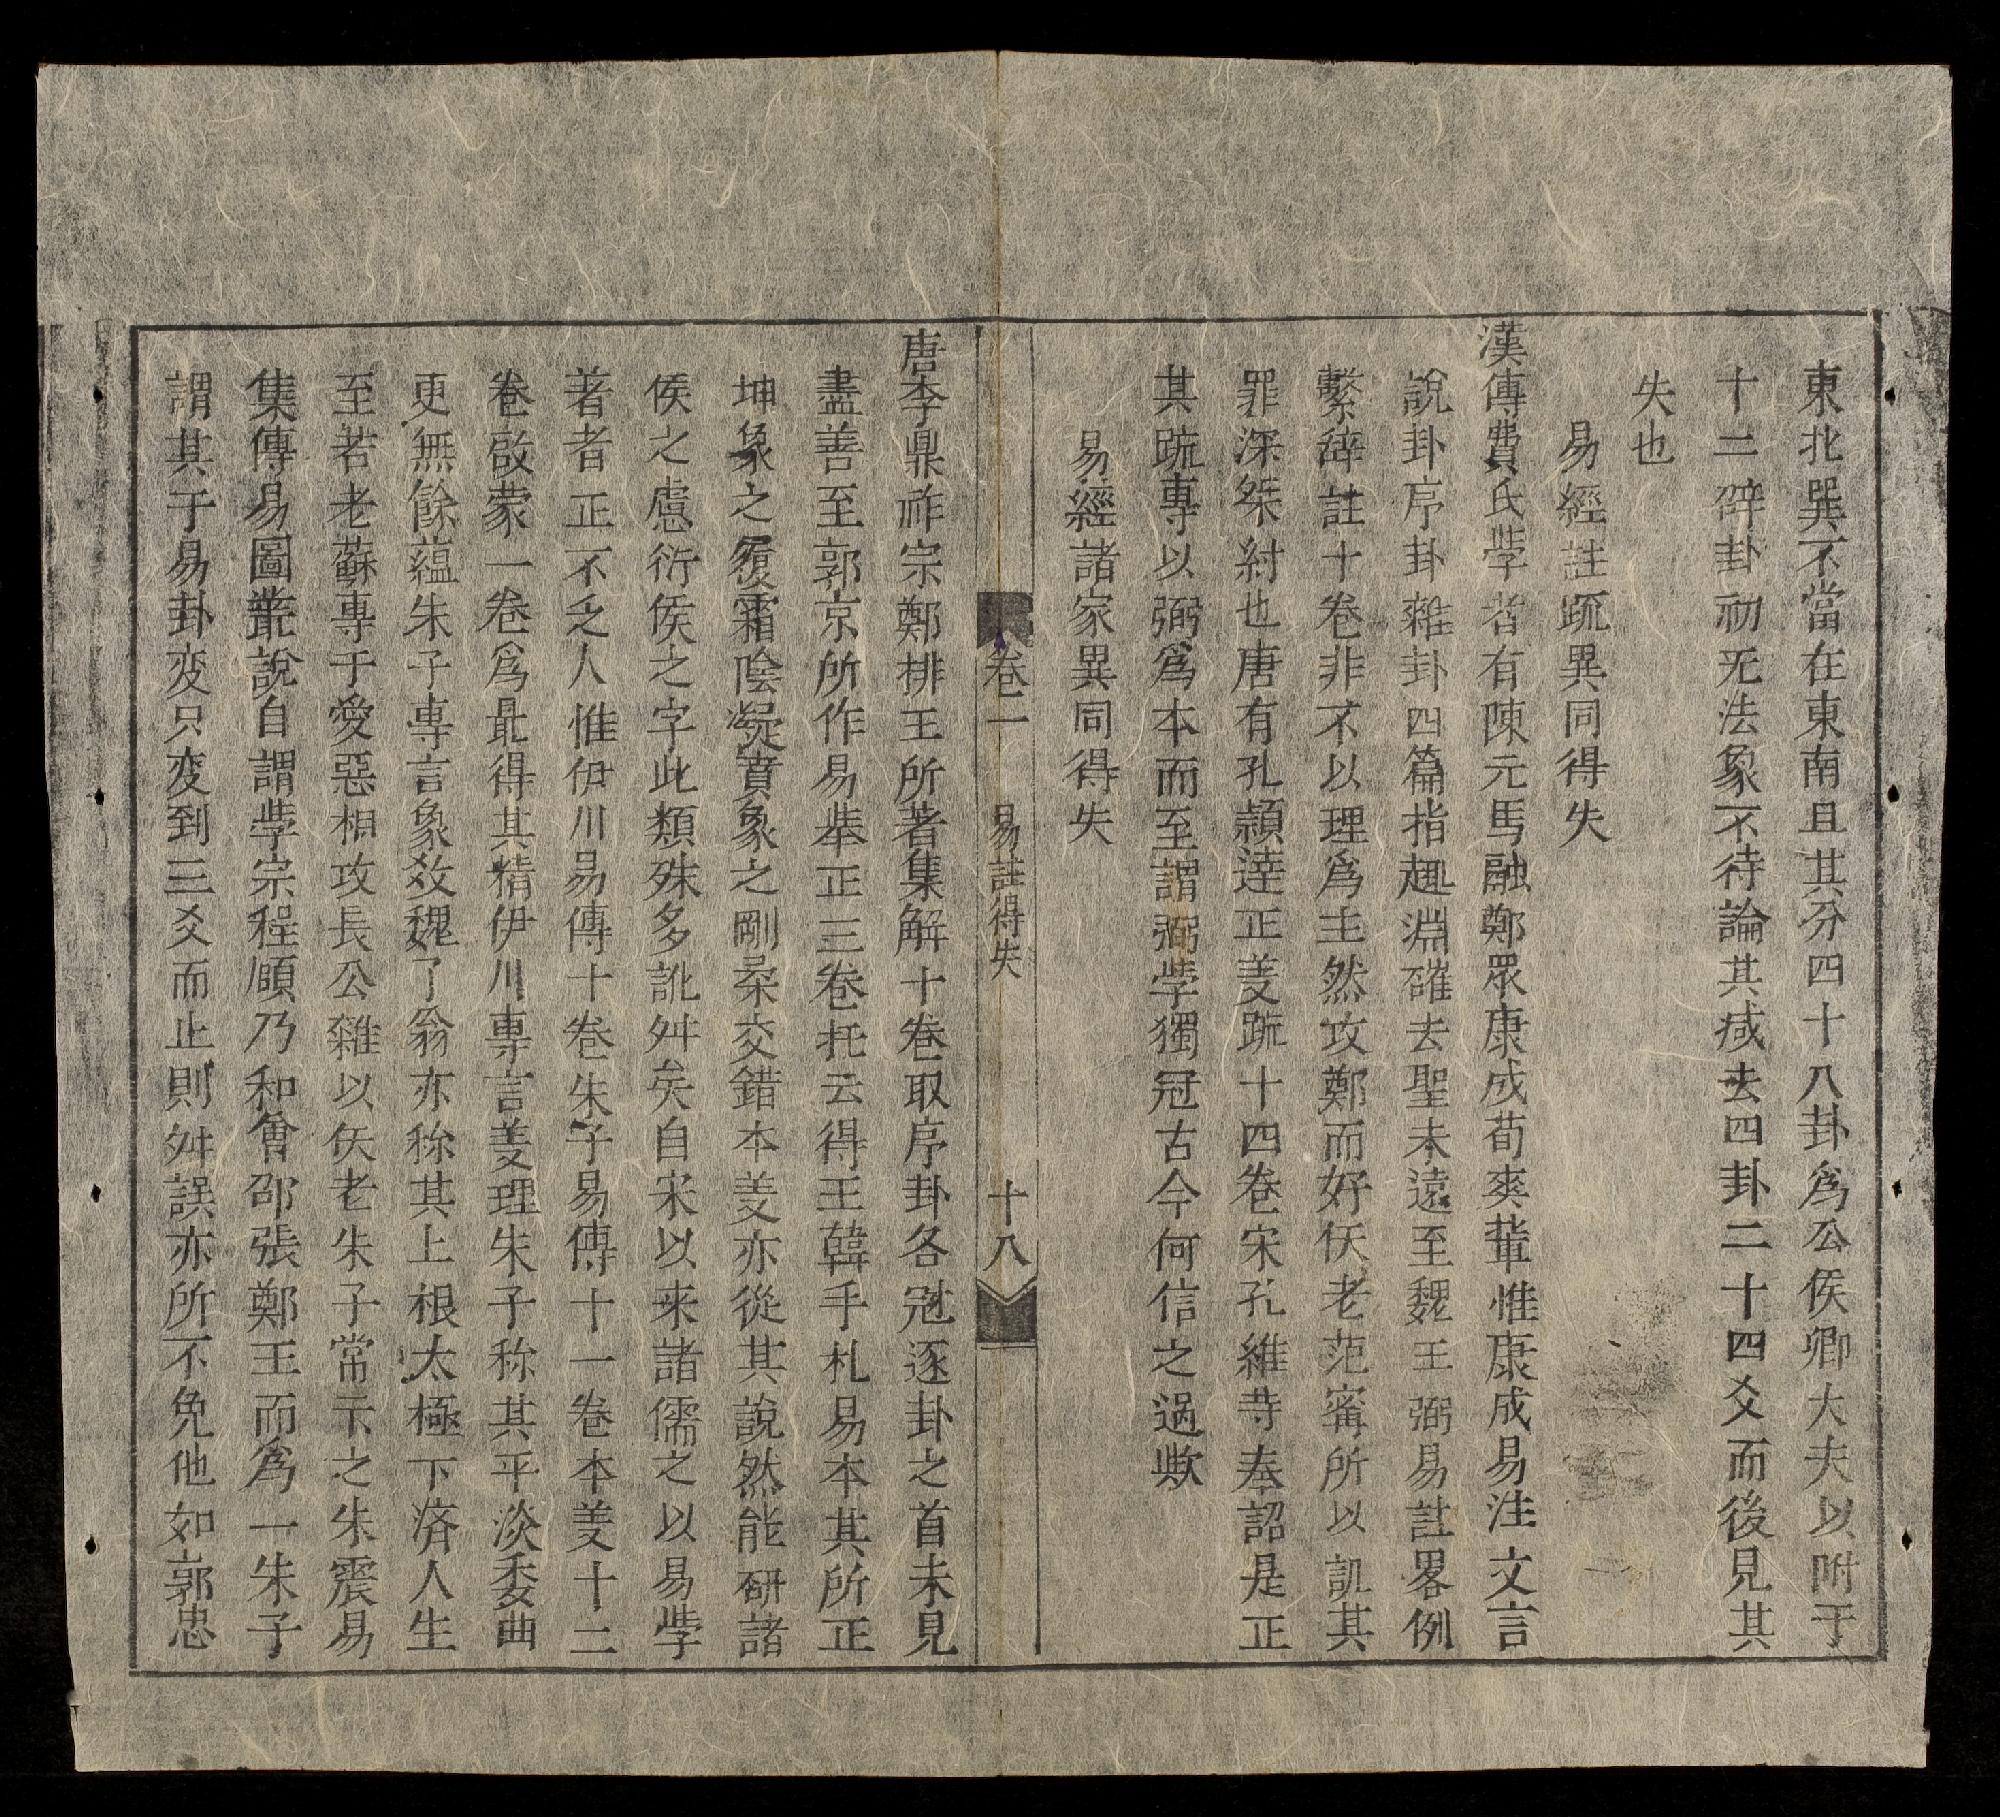 東北巽不當在東南且其分四十八卦爲公侯卿大夫以附于
十二辟卦初无法象不待論其减去四卦二十四爻而後見其
失也
易經註疏異同得失
漢傳費氏學者有陳元馬融鄭眾康成荀爽輩惟康成易注文言
說卦序卦雜卦四篇指趣淵確去聖未遠至魏王弼易註畧例
繫辭註十卷非不以理爲主然攻鄭而好仸老范寗所以詆其
罪深桀紂也唐有孔頴逹正義䟽十四卷宋孔維䓁奉詔是正
其䟽專以弼爲本而至謂弼學獨冠古今何信之過歟
易經諸家異同得失
卷一 易註得失 十八
唐李鼎祚宗鄭排王所著集解十卷取序卦各冠逐卦之首未見
盡善至郭京所作易举正三卷托云得王韓手札易本其所正
坤象之履霜陰凝賁象之剛柔交錯本義亦從其說然能硏諸
侯之慮衍侯之字此類殊多訛舛矣自宋以来諸儒之以易學
著者正不乏人惟伊川易傳十卷朱子易傳十一卷本義十二
卷啟蒙一卷爲最得其精伊川專言義理朱子称其平淡委曲
更無餘蘊朱子專言象敎魏了翁亦称其上根太極下济人生
至若老蘇專于愛惡相攻長公雜以仸老朱子常示之朱震易
集傳易圖叢說自謂學宗程頤乃和會邵張鄭王而爲一朱子
謂其于易卦变只变到三爻而止則舛誤亦所不免他如郭忠